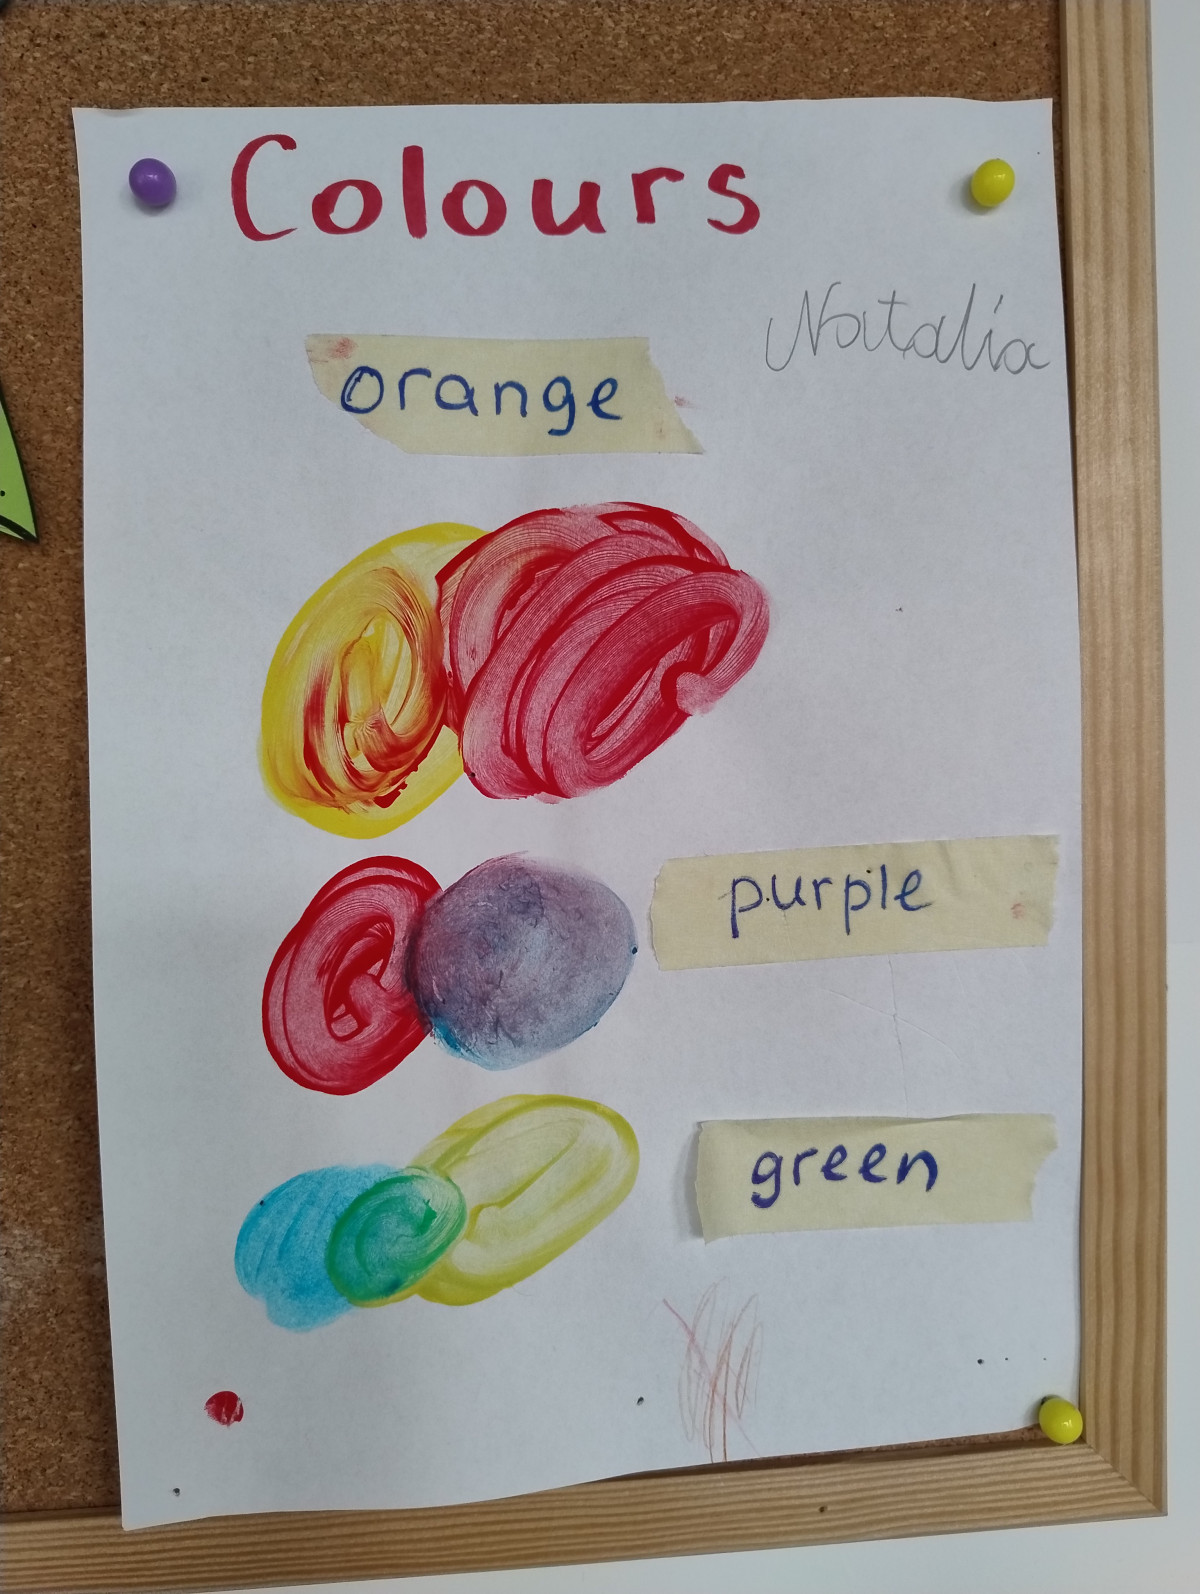 Colours
Natalia
orange
purple
green